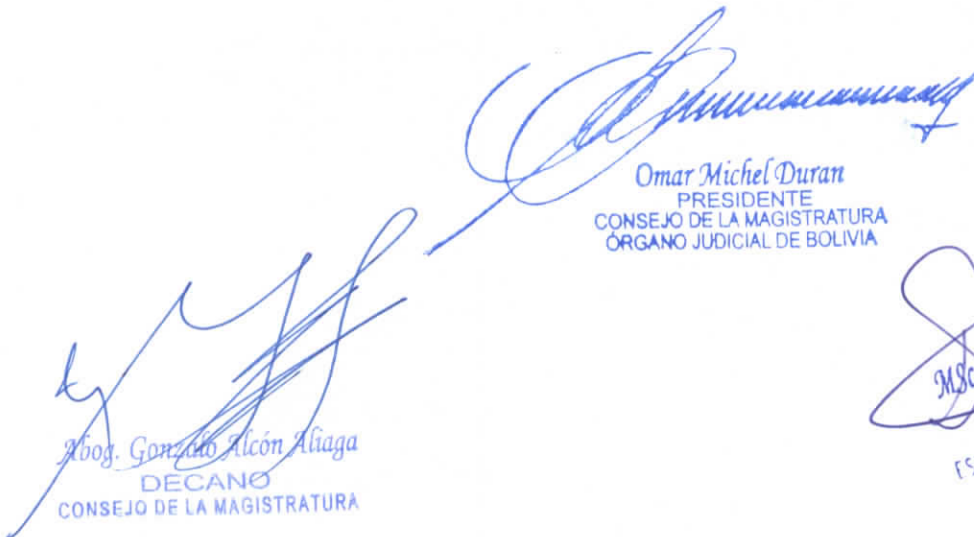 Omar Michel Duran
PRESIDENTE
CONSEJO DE LA MAGISTRATURA
ÓRGANO JUDICIAL DE BOLIVIA
Abog. Gonzalo Alcón Aliaga
DECANO
CONSEJO DE LA MAGISTRATURA